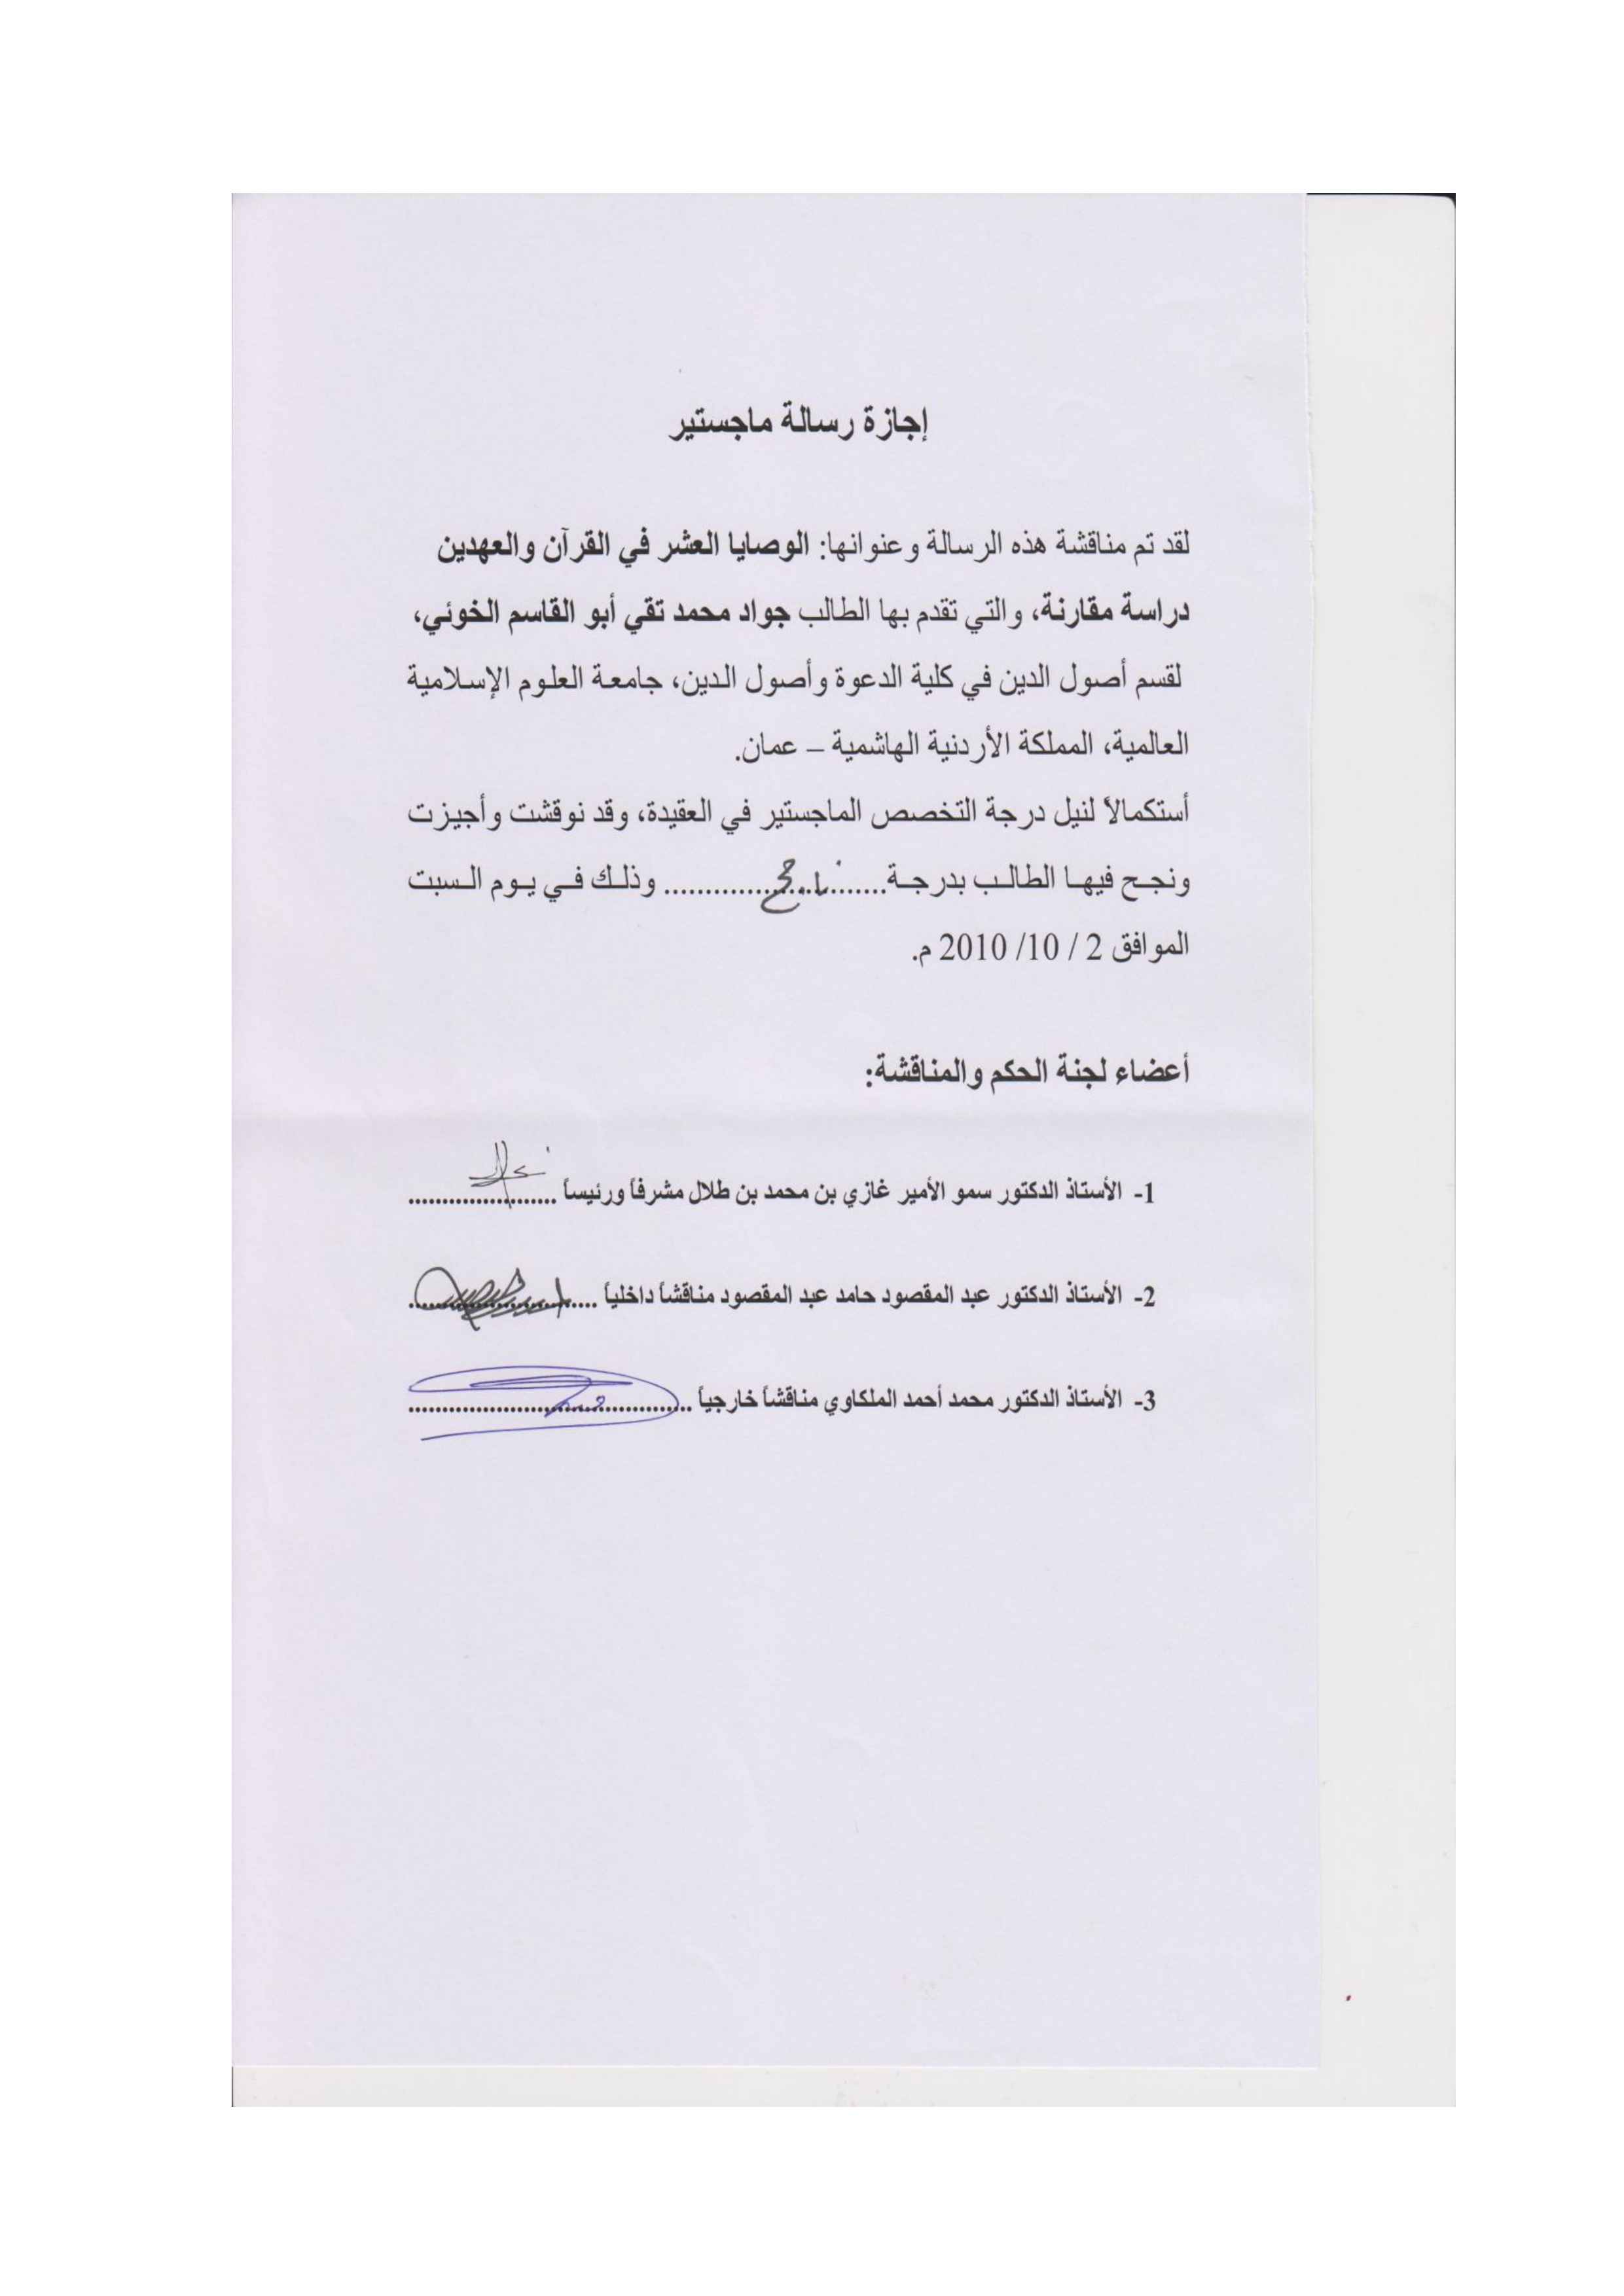 إجازة رسالة ماجستير
لقد تم مناقشة هذه الرسالة وعنوانها: الوصايا العشر في القرآن والعهدين
دراسة مقارنة، والتي تقدم بها الطالب جواد محمد تقي أبو القاسم الخوئي،
لقسم أصول الدين في كلية الدعوة وأصول الدين، جامعة العلوم الإسلامية
العالمية، المملكة الأردنية الهاشمية – عمان.
أستكمالاً لنيل درجة التخصص الماجستير في العقيدة، وقد نوقشت وأجيزت
ونجح فيها الطالب بدرجة......ناجح...... وذلك في يوم السبت
الموافق 2 / 10/ 2010 م.
أعضاء لجنة الحكم والمناقشة:
1- الأستاذ الدكتور سمو الأمير غازي بن محمد بن طلال مشرفاً ورئيساً ......................
2- الأستاذ الدكتور عبد المقصود حامد عبد المقصود مناقشاً داخلياً ............................
3- الأستاذ الدكتور محمد أحمد الملكاوي مناقشاً خارجياً ..........................................